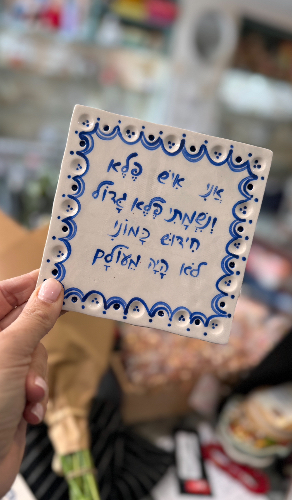 אֲנִי אִישׁ פֶּלֶא
וְנִשְׁמָתִי פֶּלֶא גָּדוֹל
חִידּוּשׁ כָּמוֹנִי
לֹא הָיָה מֵעוֹלָם